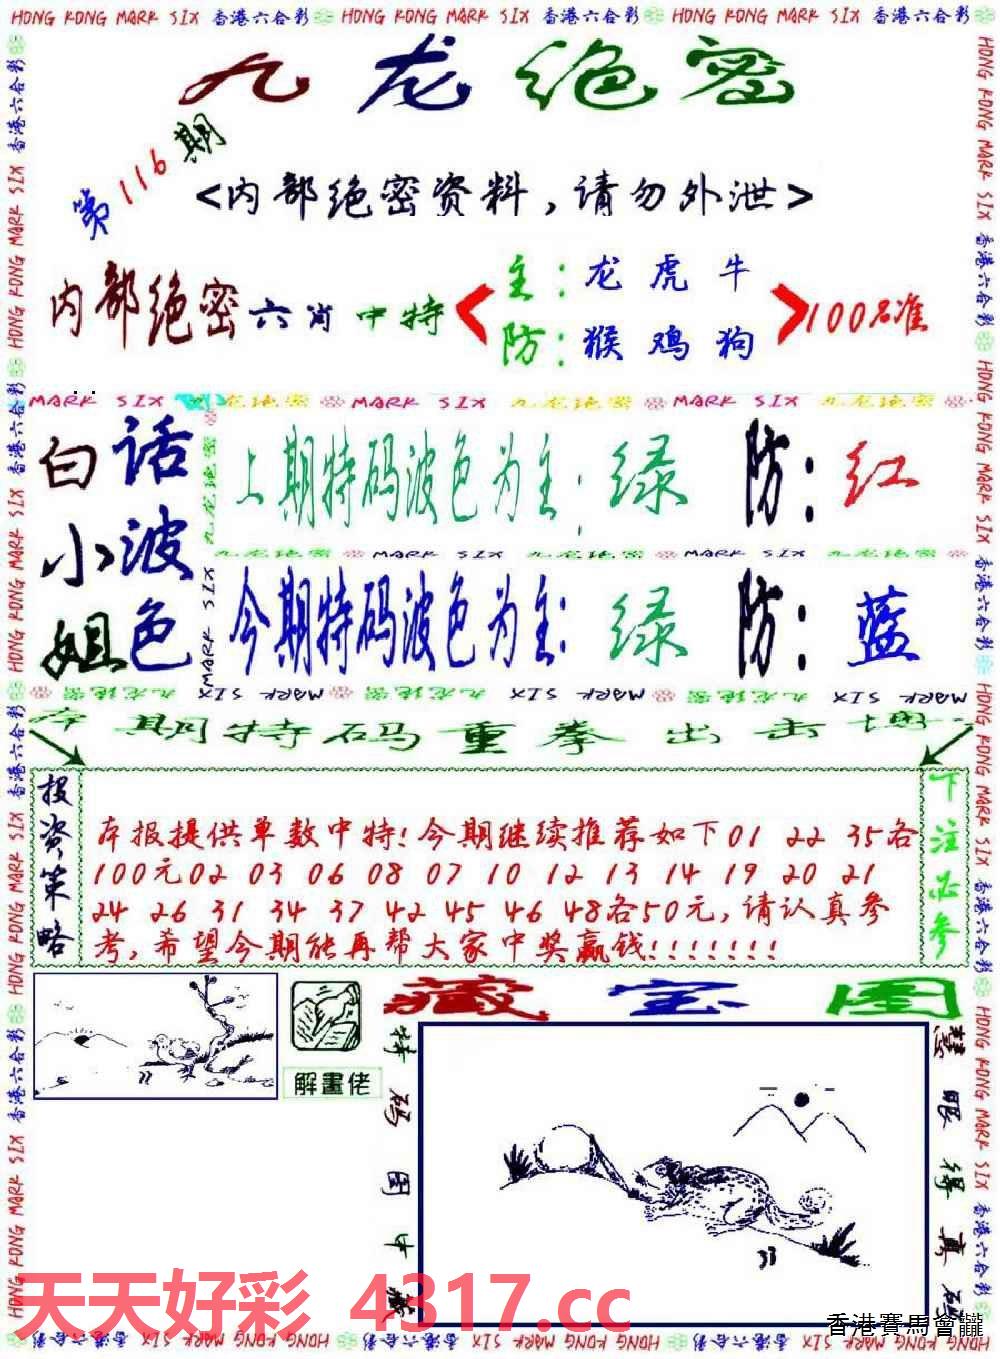 HONG KONG MARK SIX 香港六合彩 HONG KONG MARK SIX 香港六合彩 HONG KONG MARK SIX 香港六合彩
九龙绝密
第116期
<内部绝密资料，请勿外泄>
内部绝密六肖中特
主：龙 虎 牛
防：猴 鸡 狗
100%准
MARK SIX 九龙绝密 MARK SIX 九龙绝密 MARK SIX 九龙绝密
白小姐
话波色
上期特码波色为主：绿 防：红
九龙绝密 MARK SIX 九龙绝密 MARK SIX 九龙绝密
今期特码波色为主：绿 防：蓝
本期特码重拳出击
投资策略
本报提供单数中特!今期继续推荐如下01 22 35各
100元02 03 06 08 07 10 12 13 14 19 20 21
24 26 31 34 37 42 45 46 48各50元,请认真参
考,希望今期能再帮大家中奖赢钱!!!!!!!
下注必参
藏宝图
解畫佬
特码图中藏
慧眼得真码
天天好彩 4317.cc
香港賽馬會